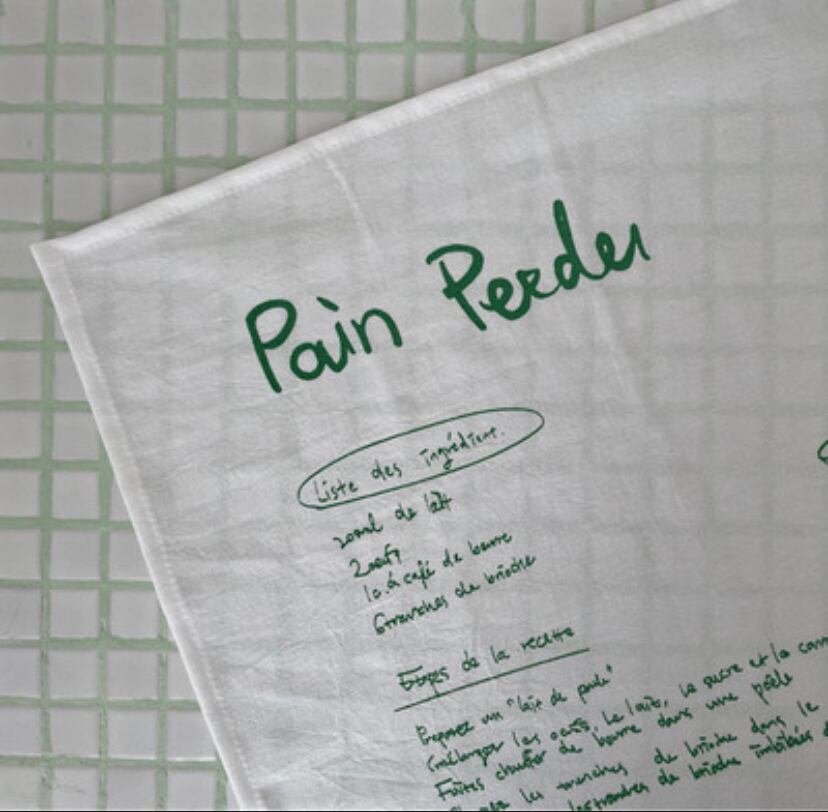 Pain Perdu
Liste des ingrédients.
200ml de lait
2 oeufs
1 c. à café de beurre
6 tranches de brioche
Etapes de la recette
Préparez un "lait de poule"
les oeufs, le lait, le sucre et la
Faites chauffer de beurre dans une poêle
les tranches de brioche dans le
les tranches de brioche imbibées